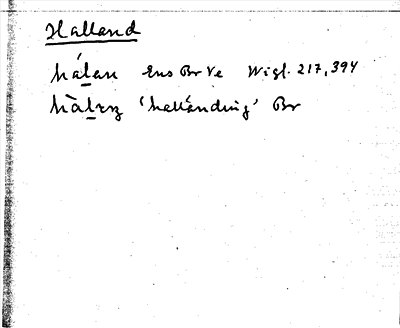 Halland
hál̲an Ens Br Ve Wigf. 217, 394
hàl̲ 'halländing' Br